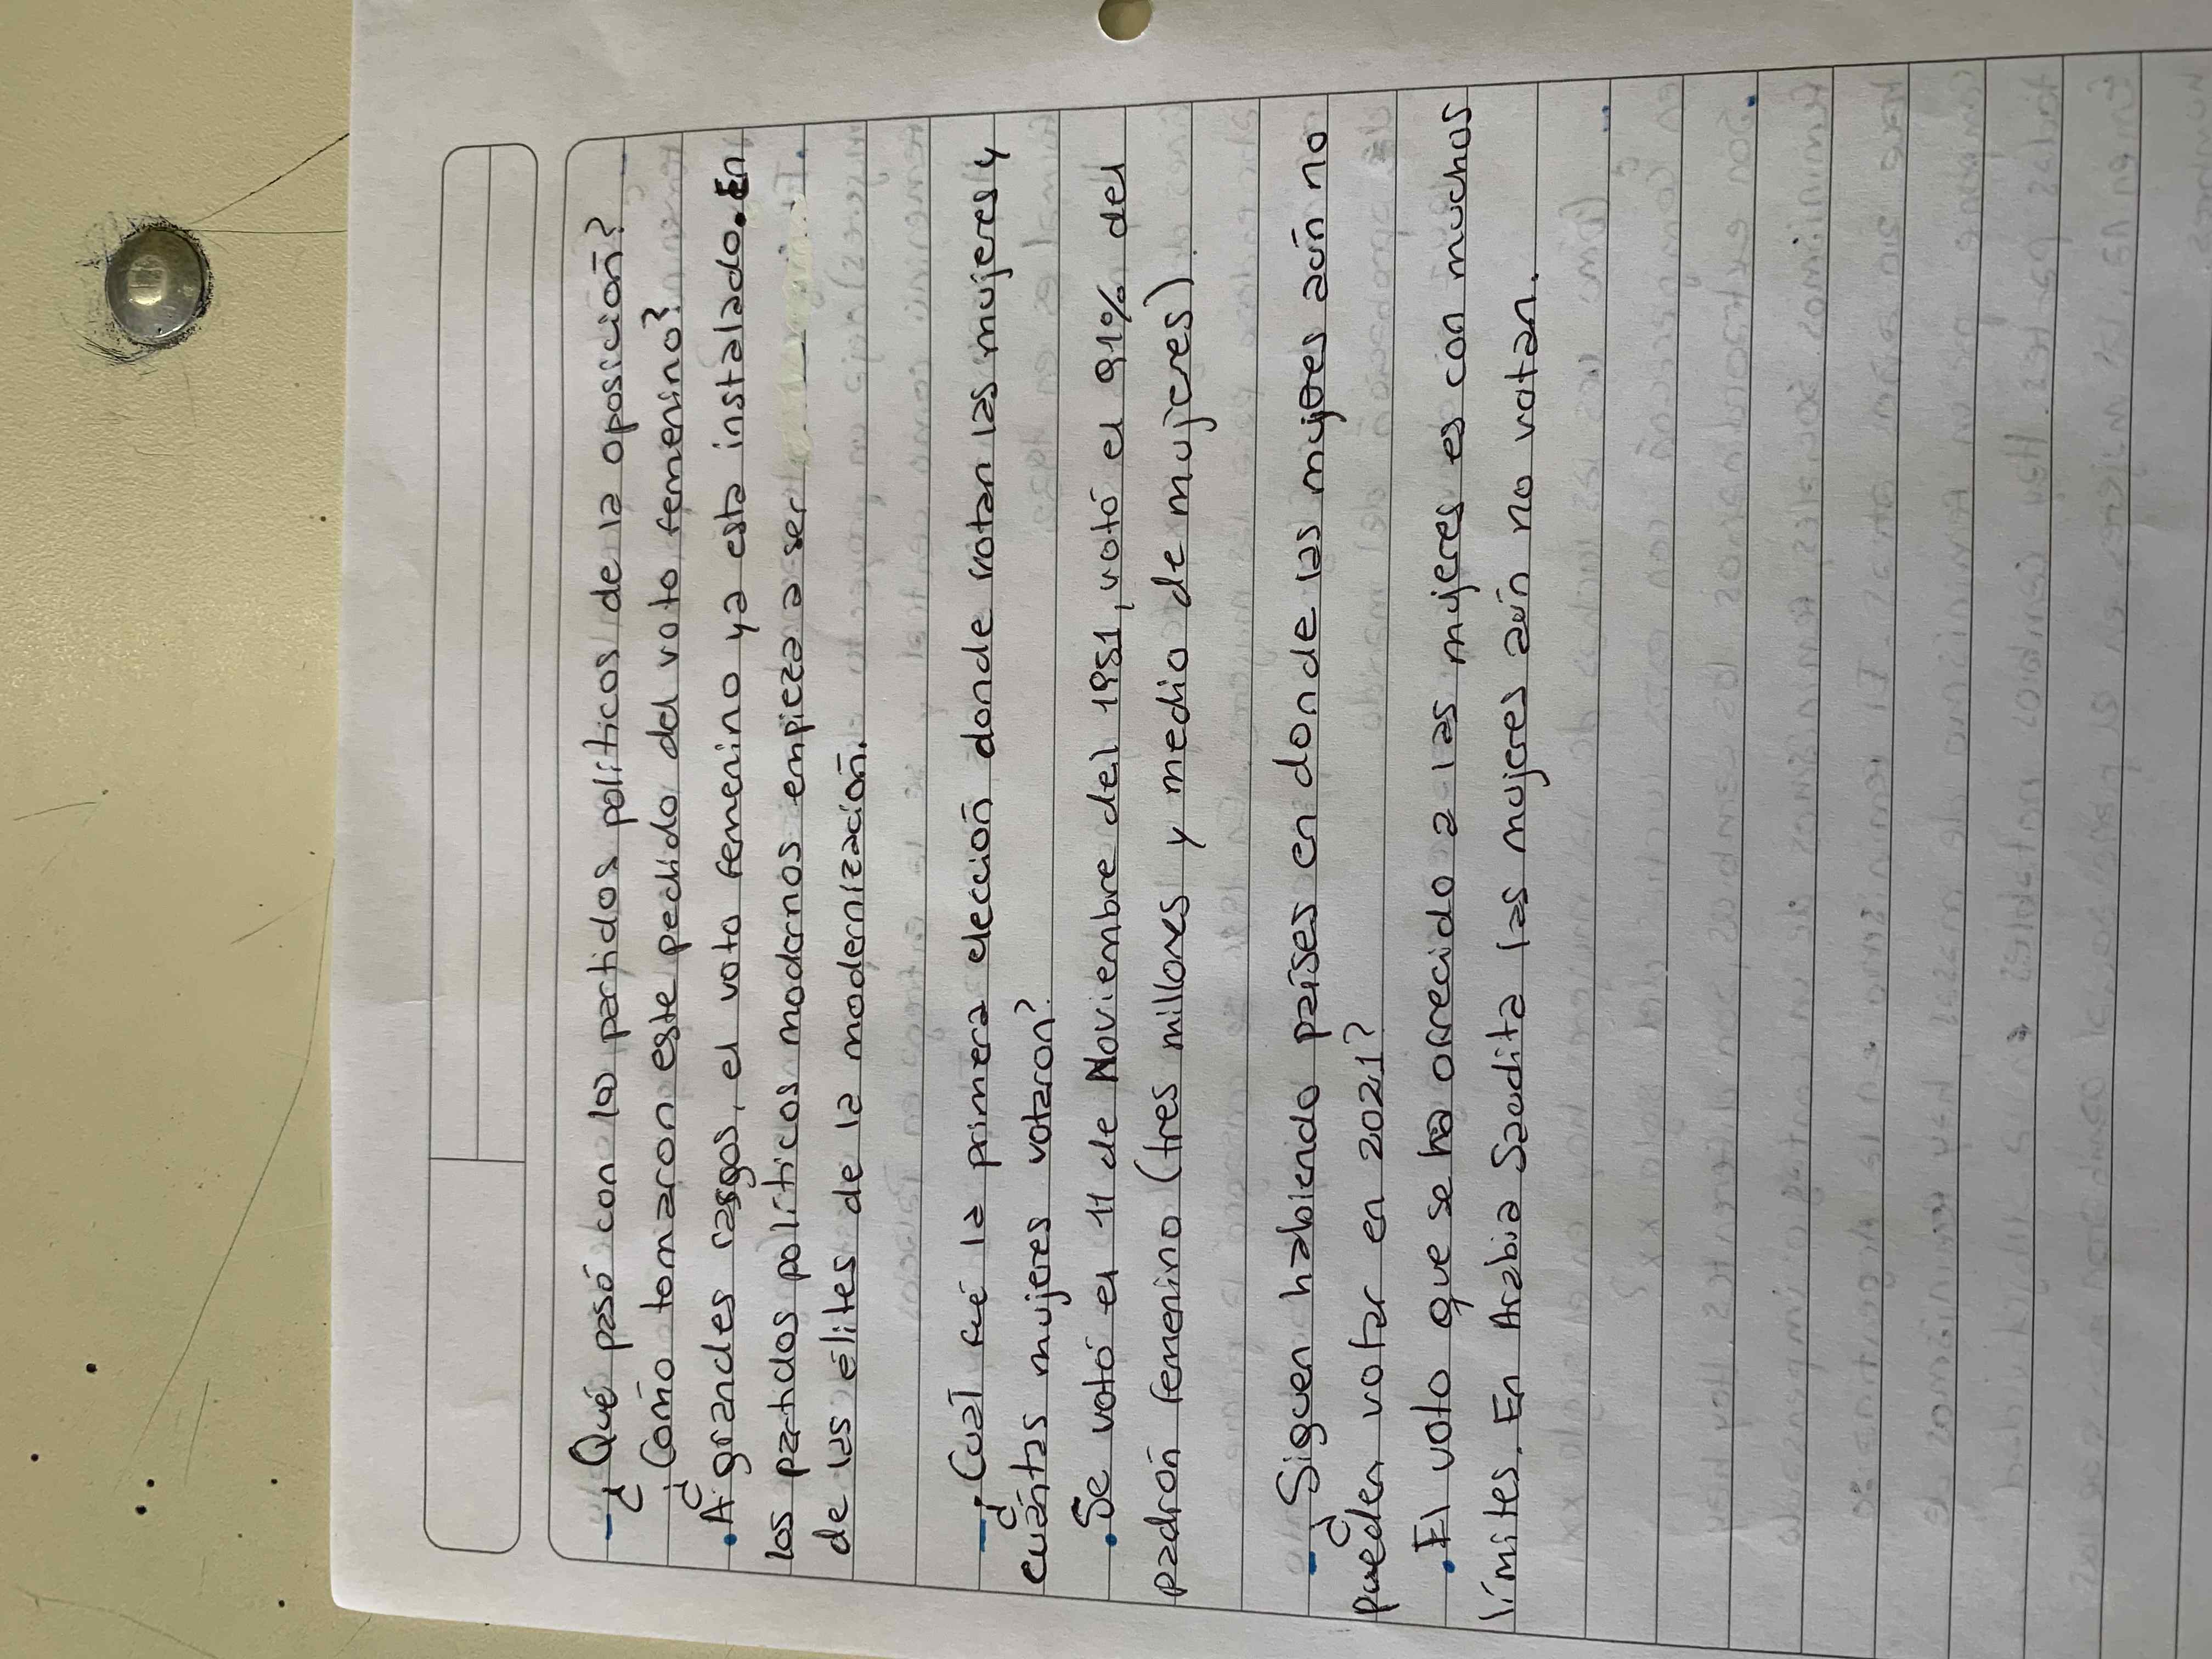 - ¿Qué pasó con los partidos políticos de la oposición?
¿Cómo tomaron este pedido del voto femenino?
• A grandes rasgos, el voto femenino ya esta instalado. En
los partidos políticos modernos empieza a ser
de las élites de la modernización.
- ¿Cuál fué la primera elección donde votan las mujeres y
cuántas mujeres votaron?
• Se votó el 11 de Noviembre del 1951, votó el 91% del
padrón femenino (tres millones y medio de mujeres)
- ¿Siguen habiendo países en donde las mujeres aún no
pueden votar en 2021?
• El voto que se ha ofrecido a las mujeres es con muchos
límites. En Arabia Saudita las mujeres aún no votan.